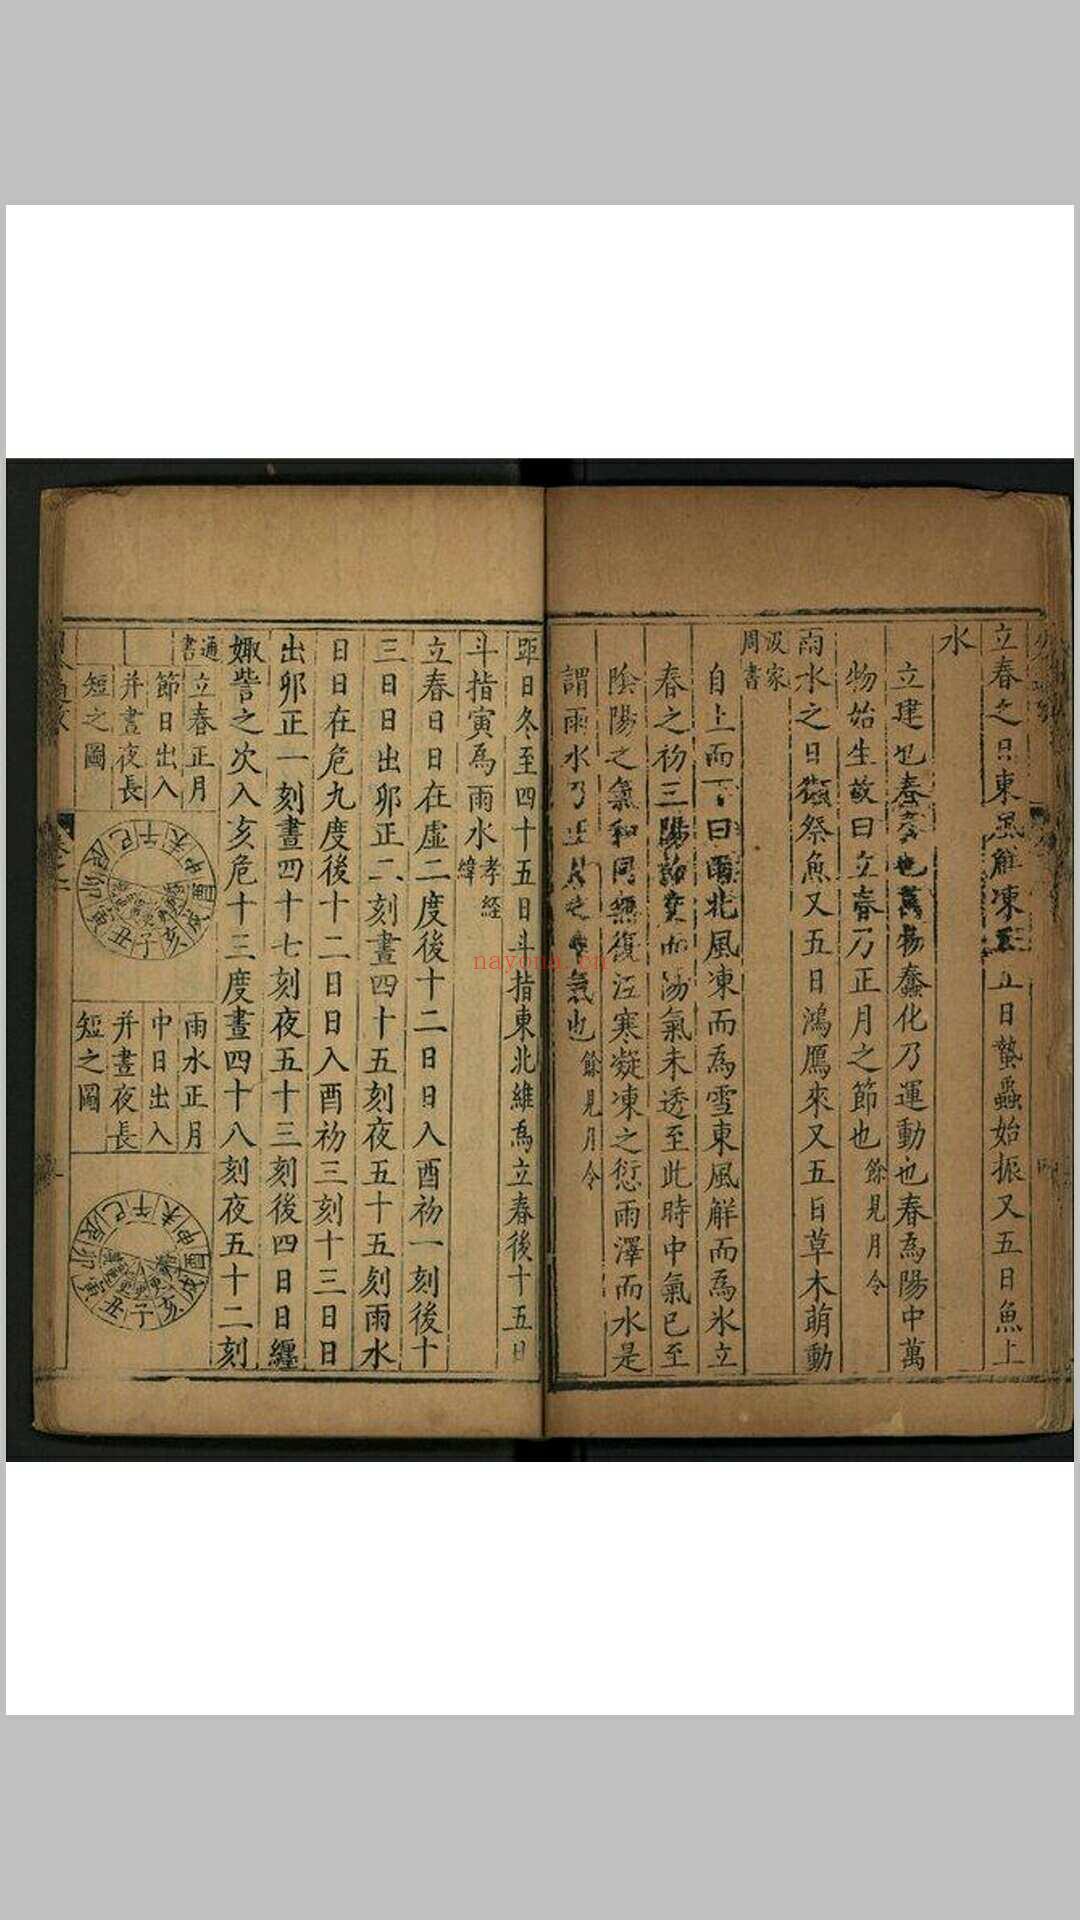 立春之日東風解凍又五日蟄蟲始振又五日魚上
水
立建也春蠢也萬物蠢化乃運動也春為陽中萬
物始生故曰立春乃正月之節也餘見月令
雨水之日獺祭魚又五日鴻鴈來又五日草木萌動
汲冢
周書
自上而下曰雨北風凍而為雪東風解而為水立
春之初三陽而陽氣未透至此時中氣已至
陰陽之氣和同無復沍寒凝凍之愆雨澤而水是
謂雨水乃正月之中氣也餘見月令
距日冬至四十五日斗指東北維為立春後十五日
斗指寅為雨水孝經
緯
立春日日在虛二度後十二日日入酉初一刻後十
三日日出卯正二刻晝四十五刻夜五十五刻雨水
日日在危九度後十二日日入酉初三刻十三日日
出卯正一刻晝四十七刻夜五十三刻後四日日纏
娵訾之次入亥危十三度晝四十八刻夜五十二刻
通
書
立春正月
節日出入
并晝夜長
短之圖
午未申酉戌亥子丑寅卯辰巳
雨水正月
中日出入
并晝夜長
短之圖
午未申酉戌亥子丑寅卯辰巳
卷之二
nayona.cn